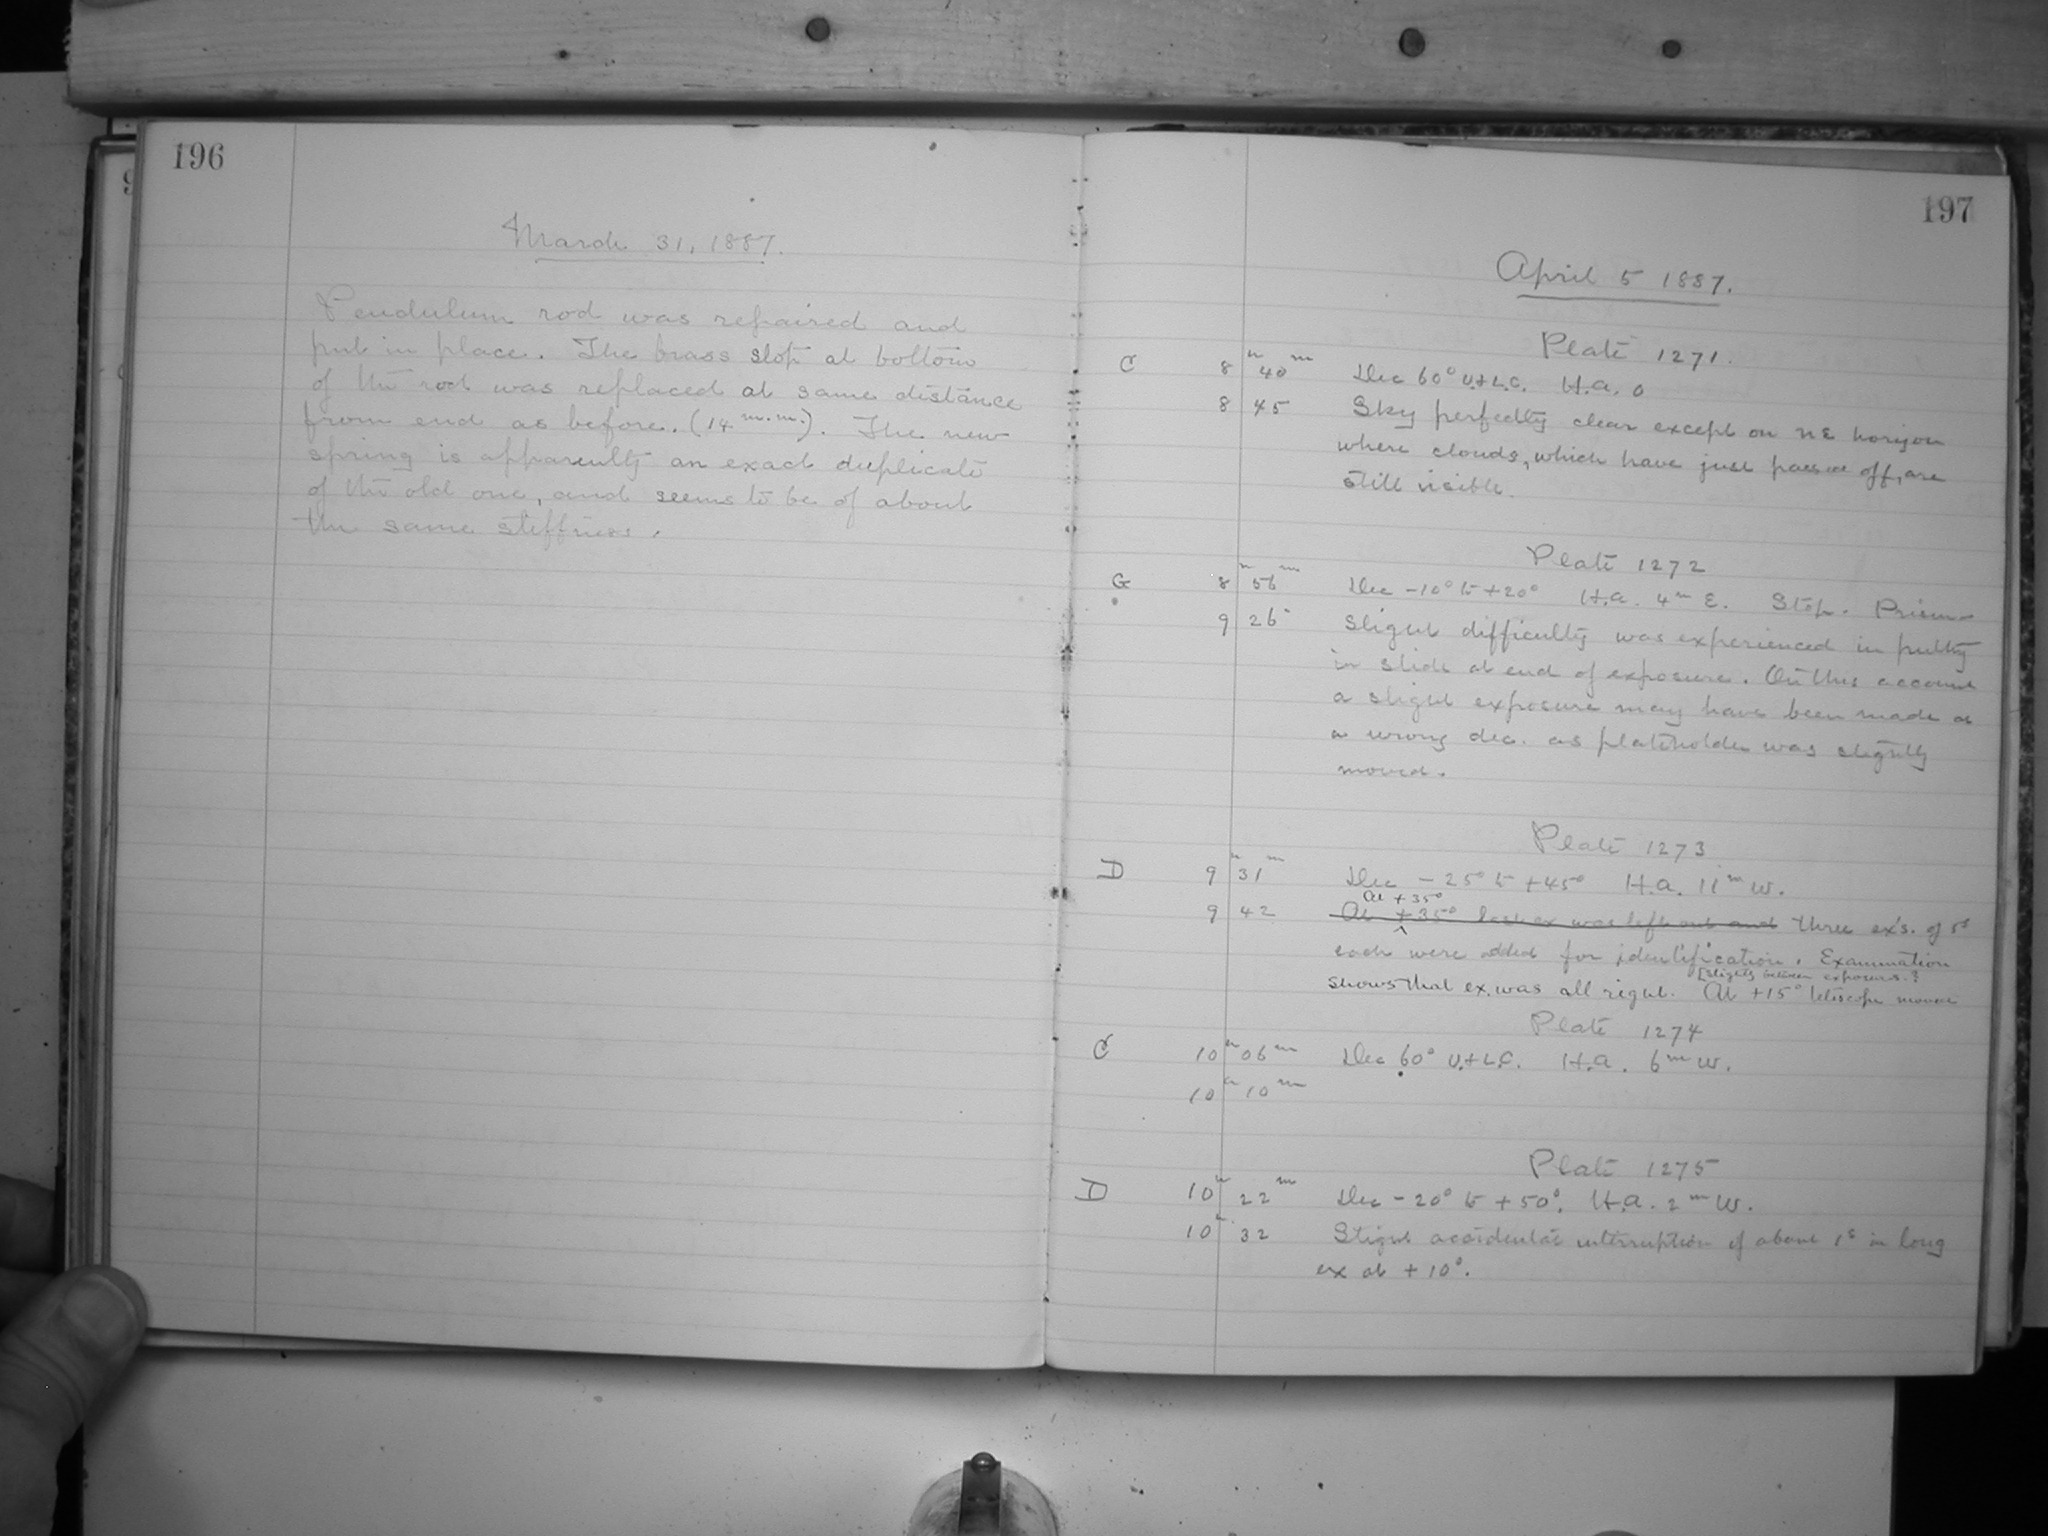 196
March 31, 1887.
Pendulum rod was repaired and
put in place. The brass stop at bottom
of the rod was replaced at same distance
from end as before. (14 m.m.). The new
spring is apparently an exact duplicate
of the old one, and seems to be of about
the same stiffness.
197
April 5 1887.
Plate 1271.
C 8h 40m Dec 60° U.+L.C. H.A. 0
8 45 Sky perfectly clear except on NE horizon
where clouds, which have just passed off, are
still visible.
Plate 1272
G 8h 56m Dec -10° to +20° H.A. 4m E. Stop. Prism
9 26 Slight difficulty was experienced in putting
in slide at end of exposure. On this account
a slight exposure may have been made at
a wrong dec. as plateholder was slightly
moved.
Plate 1273
D 9h 31m Dec -25° to +45° H.A. 11m W.
At +35°
9 42 At +35° last ex was left out and three ex's. of 5s
each were added for identification. Examination
[slightly between exposures.?
shows that ex. was all right. At +15° telescope moved
Plate 1274
C 10h 06m Dec 60° U.+L.C. H.A. 6m W.
10h 10m
Plate 1275
D 10h 22m Dec -20° to +50°. H.A. 2m W.
10h 32 Slight accidental interruption of about 1s in long
ex at +10°.